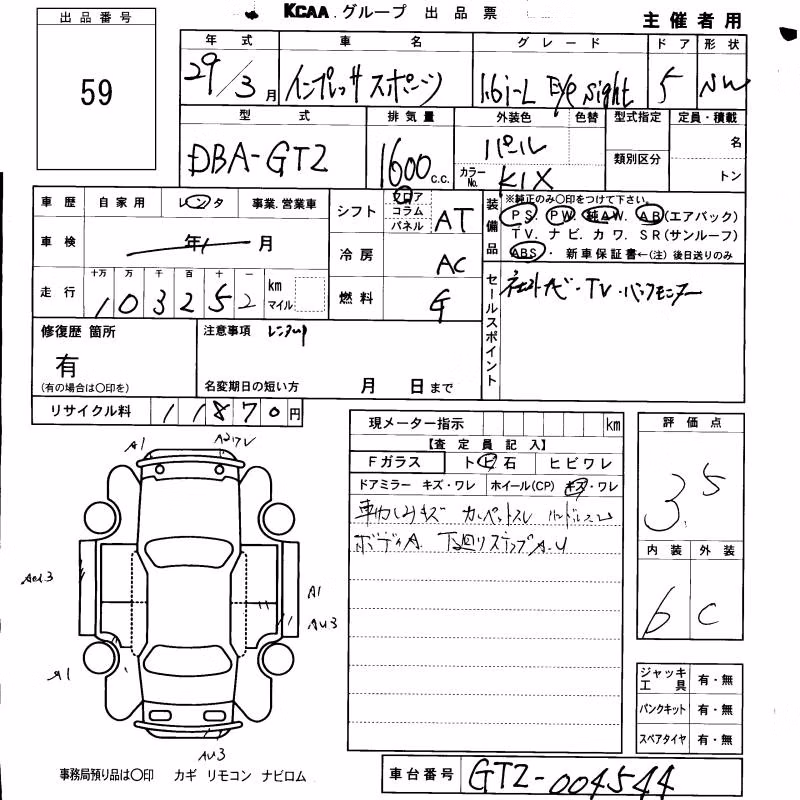 KCAA グループ 出品票
主催者用
出品番号
59
年式 車名 グレード ドア 形状
29/3月 インプレッサスポーツ 1.6i-L EyeSight 5 SW
型式 排気量 外装色 色替 型式指定 定員・積載
DBA-GT2 1600 c.c. パール
カラーNo. K1X
類別区分
名
トン
車歴 自家用 レンタ 事業.営業車
車検 年 月
走行 十万 万 千 百 十 一
1 0 3 2 5 2 km マイル
シフト フロア コラム パネル AT
冷房 AC
燃料 G
装備品 ※純正のみ○印をつけて下さい。
PS. PW. 純AW. AB(エアバック)
TV. ナビ. カワ. SR(サンルーフ)
ABS・ 新車保証書←(注)後日送りのみ
セールスポイント
社外ナビ・TV・バックモニター
修復歴 箇所
有
(有の場合は○印を)
注意事項 レンタUP
名変期日の短い方 月 日まで
リサイクル料 11870円
現メーター指示 km
【査定員記入】
Fガラス トビ石 ヒビワレ
ドアミラー キズ・ワレ ホイール(CP) キズ・ワレ
カーペットスレ ハンドルスレ
ボディA 下廻りステップA.U
評価点
3.5
内装 外装
6 C
ジャッキ工具 有・無
パンクキット 有・無
スペアタイヤ 有・無
A1
AU3
A1
AU3
A1
AU3
事務局預り品は○印 カギ リモコン ナビロム
車台番号 GT2-004544